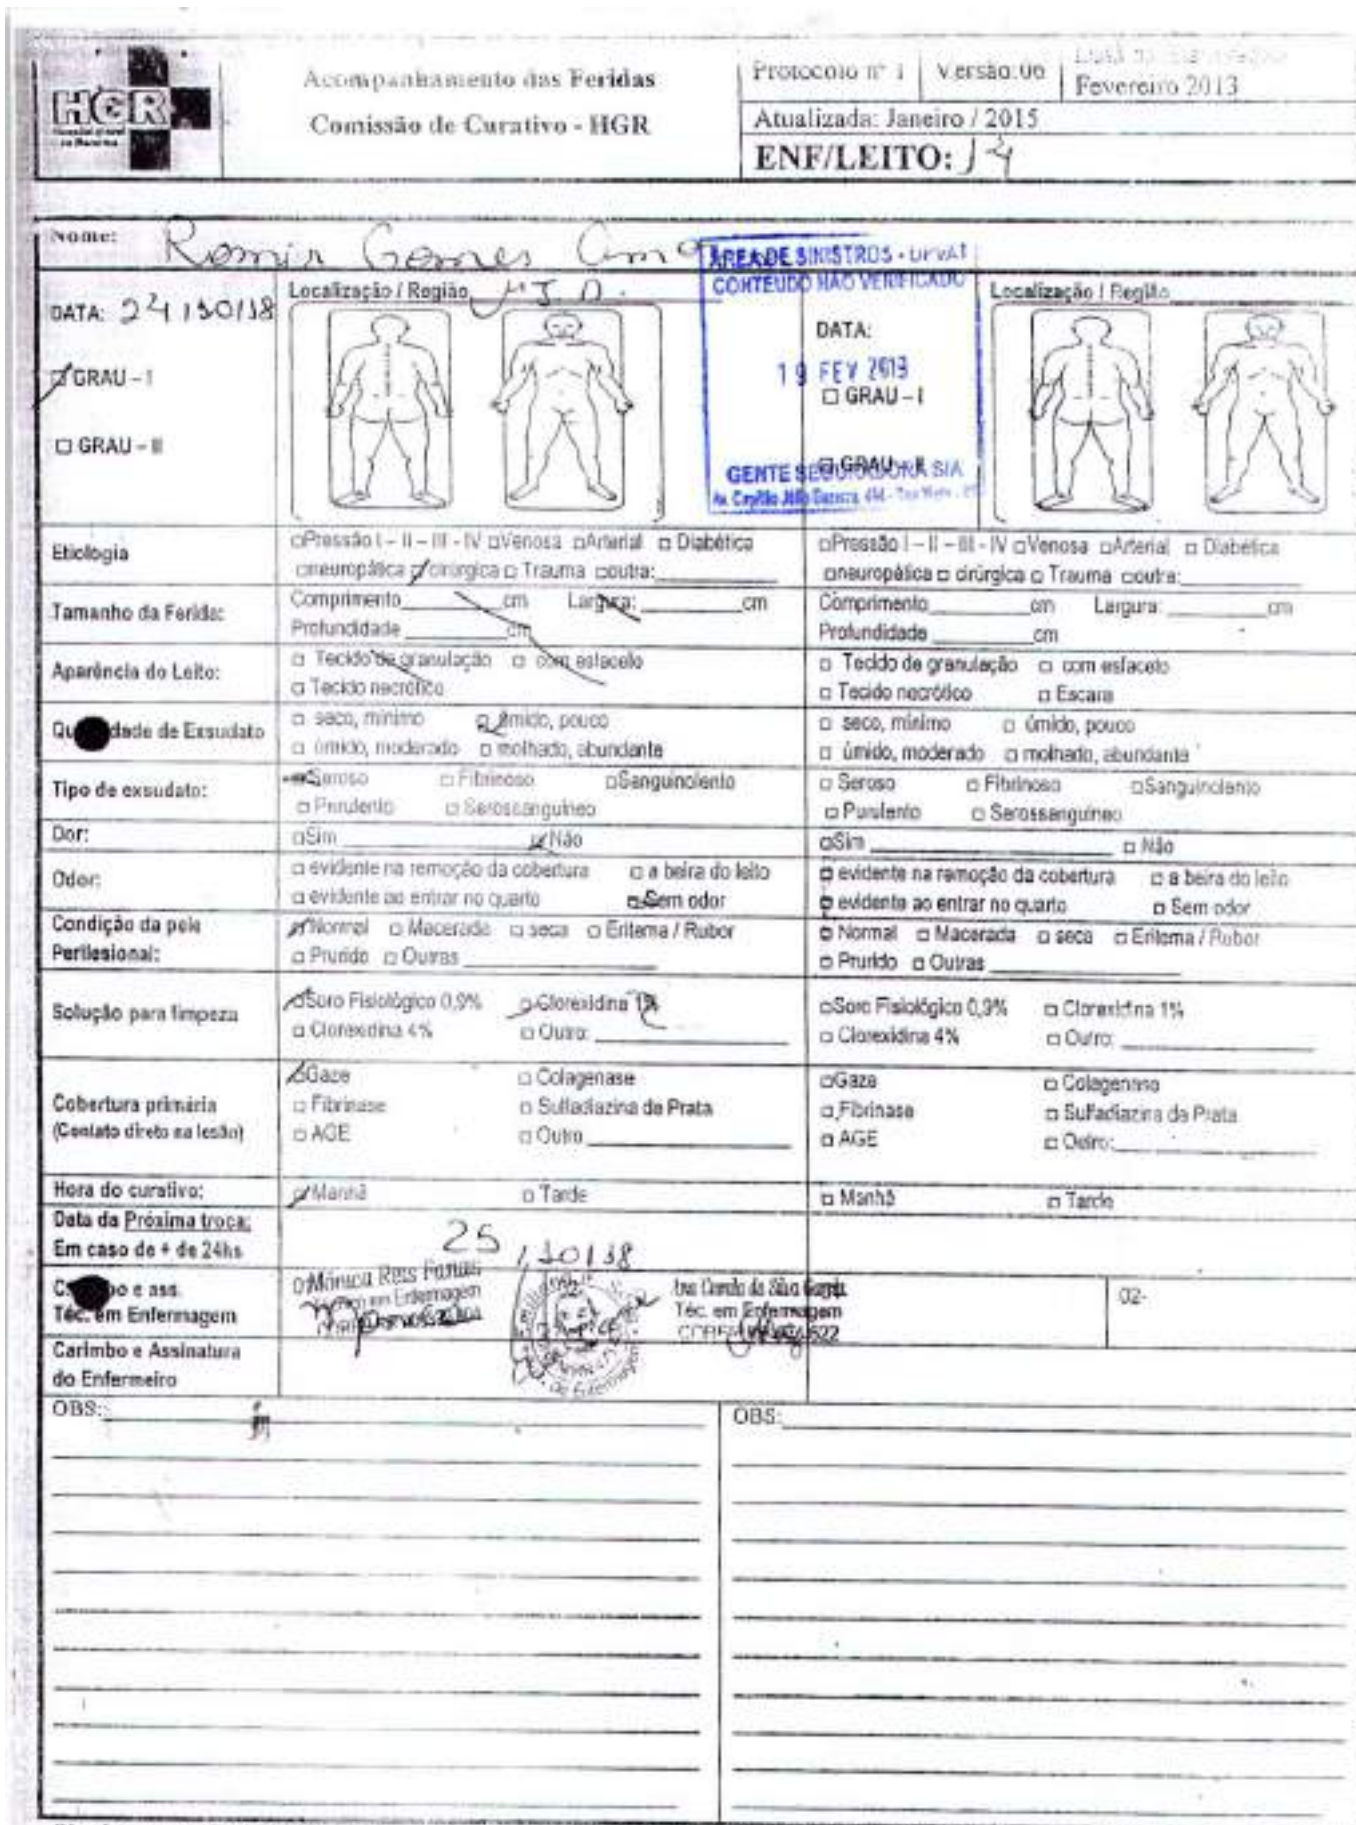 HGR
Acompanhamento das Feridas
Comissão de Curativo - HGR
Protocolo nº 1
Versão:06
Fevereiro 2013
Atualizada: Janeiro / 2015
ENF/LEITO: 14
Nome: Gomes
ÁREA DE SINISTROS - DPVAT
CONTEÚDO NÃO VERIFICADO
19 FEV 2019
GENTE SEGURADORA S/A
DATA: 24/10/18
☐ GRAU - I
☐ GRAU - II
Localização / Região M I D.
DATA:
☐ GRAU - I
☐ GRAU - II
Localização / Região
Etiologia
☐Pressão I - II - III - IV ☐Venosa ☐Arterial ☐ Diabética
☐neuropática ☐ cirúrgica ☐ Trauma ☐outra:
☐Pressão I - II - III - IV ☐Venosa ☐Arterial ☐ Diabética
☐neuropática ☐ cirúrgica ☐ Trauma ☐outra:
Tamanho da Ferida:
Comprimento cm Largura: cm
Profundidade cm
Comprimento cm Largura: cm
Profundidade cm
Aparência do Leito:
☐ Tecido de granulação ☐ com esfacelo
☐ Tecido necrótico
☐ Tecido de granulação ☐ com esfacelo
☐ Tecido necrótico ☐ Escara
dade de Exsudato
☐ seco, mínimo ☐ úmido, pouco
☐ úmido, moderado ☐ molhado, abundante
☐ seco, mínimo ☐ úmido, pouco
☐ úmido, moderado ☐ molhado, abundante
Tipo de exsudato:
☐Seroso ☐ Fibrinoso ☐Sanguinolento
☐ Purulento ☐ Serossanguíneo
☐ Seroso ☐ Fibrinoso ☐Sanguinolento
☐ Purulento ☐ Serossanguíneo
Dor:
☐Sim ☐Não
☐Sim ☐ Não
Odor:
☐ evidente na remoção da cobertura ☐ a beira do leito
☐ evidente ao entrar no quarto ☐Sem odor
☐ evidente na remoção da cobertura ☐ a beira do leito
☐ evidente ao entrar no quarto ☐ Sem odor
Condição da pele
Perilesional:
☐Normal ☐ Macerada ☐ seca ☐ Eritema / Rubor
☐ Prurido ☐ Outras
☐ Normal ☐ Macerada ☐ seca ☐ Eritema / Rubor
☐ Prurido ☐ Outras
Solução para limpeza
☐Soro Fisiológico 0,9% ☐ Clorexidina 1%
☐ Clorexidina 4% ☐ Outro:
☐Soro Fisiológico 0,9% ☐ Clorexidina 1%
☐ Clorexidina 4% ☐ Outro:
Cobertura primária
(Contato direto na lesão)
☐Gaze ☐ Colagenase
☐ Fibrinase ☐ Sulfadiazina de Prata
☐ AGE ☐ Outro
☐Gaze ☐ Colagenase
☐ Fibrinase ☐ Sulfadiazina de Prata
☐ AGE ☐ Outro:
Hora do curativo:
☐Manhã ☐ Tarde
☐ Manhã ☐ Tarde
Data da Próxima troca:
Em caso de + de 24hs
25/10/18
e ass.
Téc. em Enfermagem
Mônica Reis
em Enfermagem
02-
da Silva
Téc. em Enfermagem
02-
Carimbo e Assinatura
do Enfermeiro
de Enfermagem
OBS:
OBS: